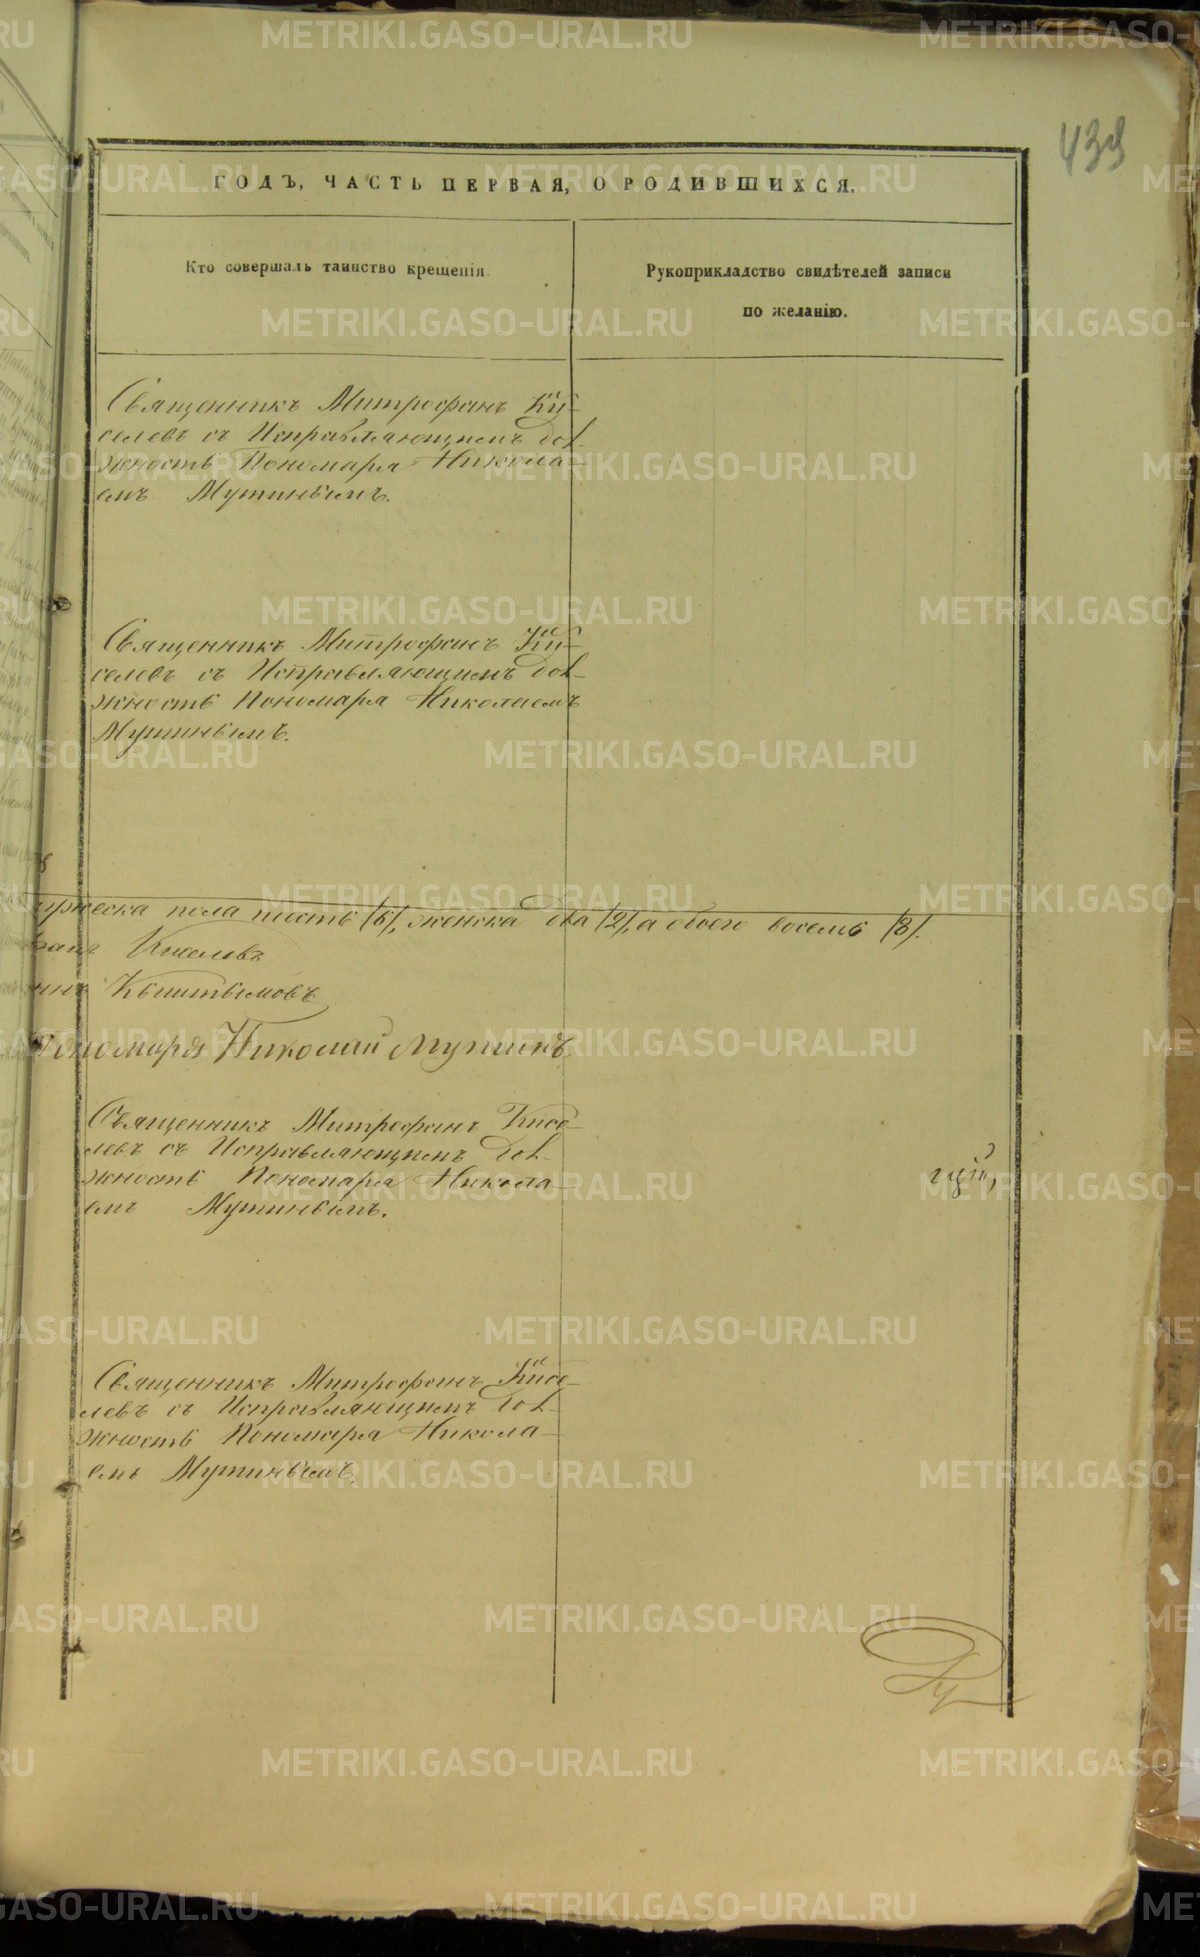 439
ГОДЪ, ЧАСТЬ ПЕРВАЯ, О РОДИВШИХСЯ.
Кто совершалъ таинство крещенія.
Рукоприкладство свидѣтелей записи
по желанію.
Священникъ Митрофанъ Ки-
селевъ съ Исправляющимъ дол-
жность Пономаря Никола-
емъ Мутинымъ.
Священникъ Митрофанъ Ки-
селевъ съ Исправляющимъ дол-
жность Пономаря Николаемъ
Мутинымъ.
мужеска пола шесть /6/, женска два /2/, а обоего восемь /8/.
Киселевъ
Кыштымовъ
Пономаря Николай Мутинъ
Священникъ Митрофанъ Кисе-
левъ съ Исправляющимъ дол-
жность Пономаря Никола-
емъ Мутинымъ.
гцій,
Священникъ Митрофанъ Кисе-
левъ съ Исправляющимъ дол-
жность Пономаря Никола-
емъ Мутинымъ.
METRIKI.GASO-URAL.RU